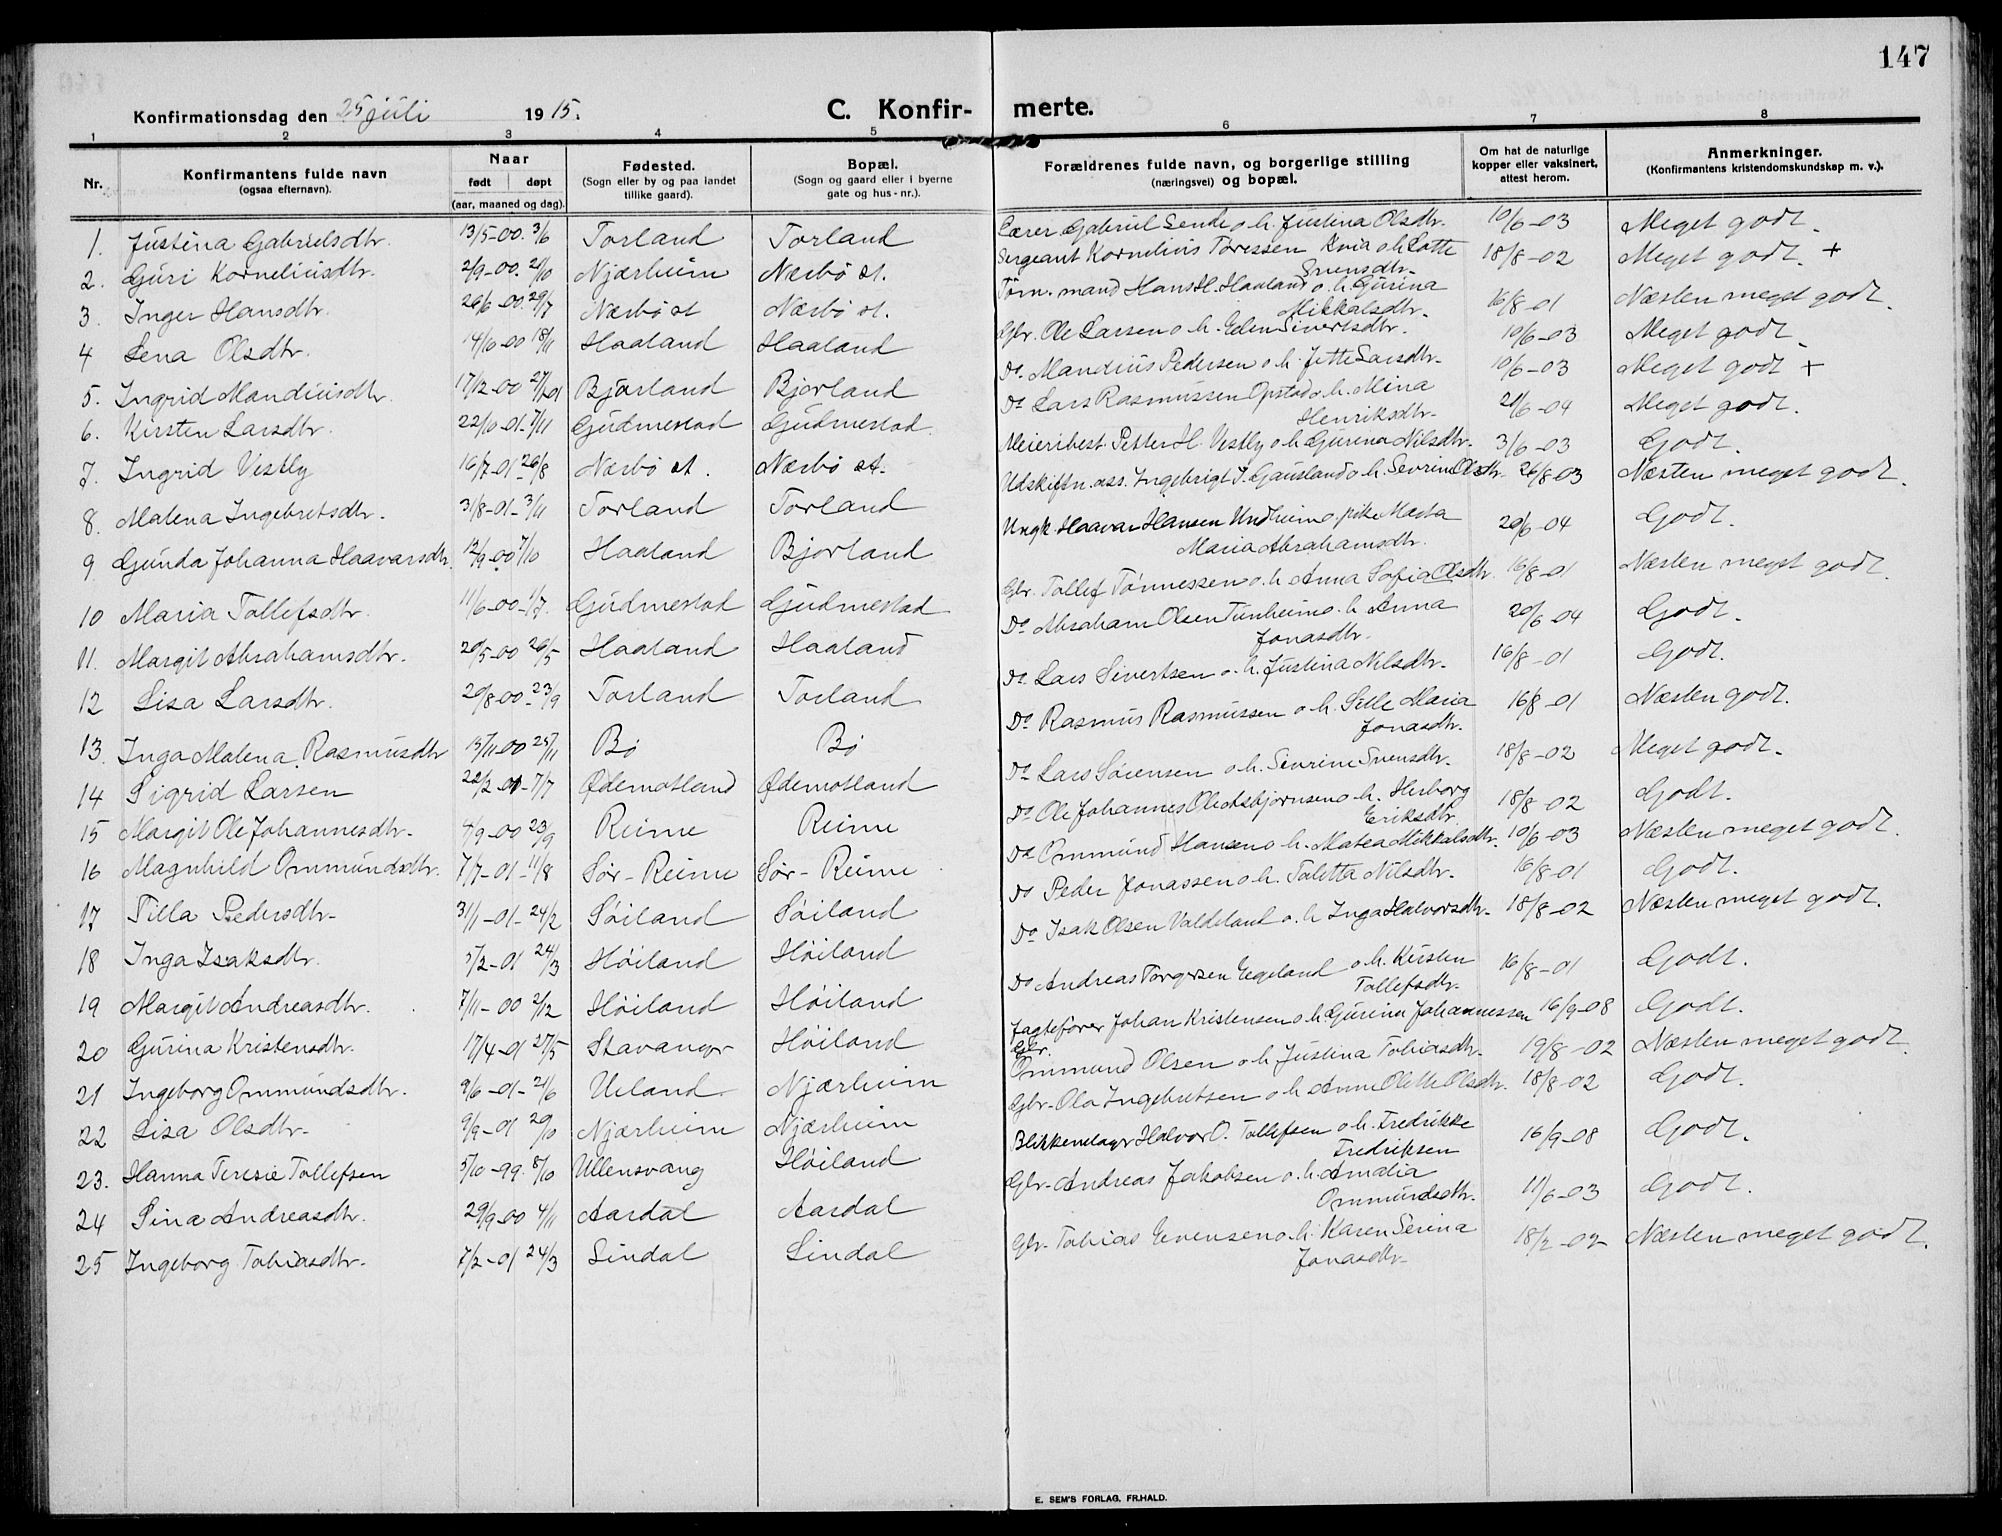 147
Konfirmationsdag den 25 juli 1915.
C. Konfirmerte.
1 2 3 4 5 6 7 8
Nr.
Konfirmantens fulde navn
(ogsaa efternavn).
Naar
født døpt
(aar, maaned og dag).
Fødested.
(Sogn eller by og paa landet
tillike gaard).
Bopæl.
(Sogn og gaard eller i byerne
gate og hus-nr.).
Forældrenes fulde navn, og borgerlige stilling
(næringsvei) og bopæl.
Om hat de naturlige
kopper eller vaksinert,
attest herom.
Anmerkninger.
(Konfirmantens kristendomskundskap m. v.).
1. Justina Gabrielsdtr. 13/5-00. 3/6 Torland Torland Lærer Gabriel Sende o. h. Justina Olsdtr. 10/6-03 Meget godt.
2. Guri Korneliusdtr. 2/9-00. Njærheim Nærbö st. Sergeant Kornelius Toressen o. h. Lotte Svensdtr. 18/8-02 Meget godt. +
3. Inger Hansdtr. 26/6-00. 29/7 Nærbö st Nærbö st. mand Hans H. Haaland o. h. Gurina Mikkalsdtr. 16/8-01 Næsten meget godt.
4 Lena Olsdtr. 14/10-00 18/11 Haaland Haaland Gbr. Ole Larsen o. h. Elen Sivertsdtr. 10/6-03 Meget godt.
5. Ingrid Mandiusdtr. 17/12-00 Bjorland Bjorland Do. Mandius Pedersen o. h. Jette Larsdtr. 10/6-03 Meget godt +
6. Kirsten Larsdtr. 22/10-01- 7/11 Gudmestad Gudmestad Do Lars Rasmussen Opstad o. h. Mina Henriksdtr. 21/6-04 Meget godt.
7. Ingrid Vestly 16/7-01 26/8 Nærbö st. Nærbö st. Meieribest. Petter H. Vestly o. h. Gurina Nilsdtr. 3/6-03 Godt.
8. Malena Ingebretsdtr. 31/8-01- 3/11 Torland Torland Udskiftn. ass. Ingebrigt J. Gausland o. h. Sevrine Olsdtr. 26/8-03 Næsten meget godt.
9 Gunda Johanna Haavarsdtr. 12/9-00 7/10 Haaland Bjorland Ungk. Haavar Hansen Undheim o. pike Marta Maria Abrahamsdtr. 20/6-04 Godt.
10 Maria Tollefsdtr. 11/6-00- 1/7. Gudmestad Gudmestad Gbr. Tollef Tönnessen o. h. Anna Sofia Olsdtr. 16/8-01 Næsten meget godt.
11. Margit Abrahamsdtr. 20/5-00 26/5 Haaland Haaland Do Abraham Olsen Tunheim o. h. Anna Jonasdtr. 20/6-04 Godt.
12 Lisa Larsdtr. 20/8-00- 23/9 Torland Torland Do. Lars Sivertsen o. h. Justina Nilsdtr. 16/8-01 Godt.
13. Inga Malena Rasmusdtr 15/11-00 25/11 Bö Bö Do Rasmus Rasmussen o. h. Sille Maria Jonasdtr. 16/8-01 Næsten godt.
14 Sigrid Larsen 22/2-01- 7/7 Ødemotland Ødemotland Do Lars Sörensen o. h. Sevrine Svensdtr. 18/8-02 Meget godt.
15 Margit Ole Johannesdtr. 4/9-00 23/9 Reime Reime Do Ole Johannes Ole Asbjörnsen o. h. Herborg Eriksdtr. 18/8-02 Godt.
16 Magnhild Ommundsdtr. 7/7-01- 11/8 Sör-Reime Sör-Reime Do Ommund Hansen o. h. Matea Mikkalsdtr. 10/6-03 Næsten meget godt.
17 Tilla Pedersdtr. 31/1-01- 24/2 Söiland Söiland Do Peder Jonassen o. h. Taletta Nilsdtr. 16/8-01 Godt.
18 Inga Isaksdtr. 5/2-01 24/3 Höiland Höiland Do Isak Olsen Valdeland o. h Inga Halvorsdtr. 18/8-02 Næsten meget godt.
19 Margit Andreasdtr. 7/11-00 2/12 Höiland Höiland Do Andreas Torgersen Eegeland o. h. Kirsten Tollefsdtr. 16/8-01 Godt.
20 Gurina Kristensdtr. 17/4-01 27/5 Stavanger Höiland Jagtefører Johan Kristensen o. h. Gurina Johannessen 16/9-08 Godt.
21 Ingeborg Ommundsdtr. 9/6-01- 21/6 Ueland Njærheim Gbr. Ommund Olsen o. h. Justina Tobiasdtr. 19/8-02 Næsten meget godt.
22 Lisa Olsdtr. 9/9-01 20/10 Njærheim Njærheim Gbr. Ola Ingebretsen o. h Anne Olette Olsdtr. 18/8-02 Godt.
23. Hanna Teresie Tollefsen 5/10-99. 8/10 Ullensvang Höiland Blikkenslager Halvor O. Tollefsen o. h. Fredrikke Fredriksen 16/9-08 Godt.
24 Sina Andreasdtr. 29/9-00 4/11 Aardal Aardal Gbr. Andreas Jakobsen o. h. Amalia Ommundsdtr. 11/6-03 Godt.
25 Ingeborg Tobiasdtr. 7/2-01 24/3 Lindal Lindal Gbr. Tobias Evensen o. h. Karen Serina Jonasdtr. 18/2-02 Næsten meget godt.
E. SEM'S FORLAG, FR.HALD.